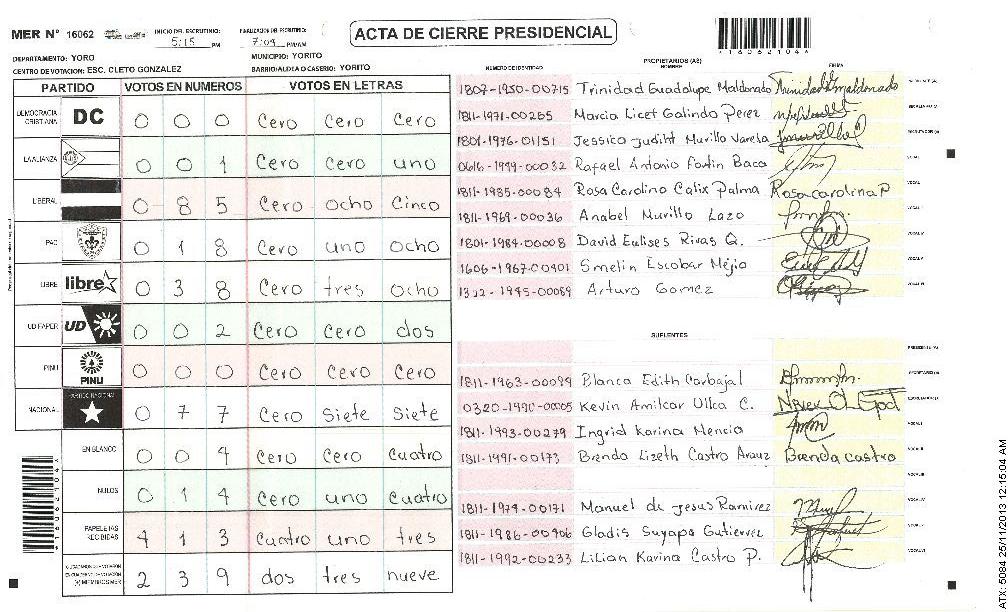 MER Nº 16062
INICIO DEL ESCRUTINIO: 5:15 PM
FINALIZACION DEL ESCRUTINIO: 7:09 PM/AM
ACTA DE CIERRE PRESIDENCIAL
*16062104*
DEPARTAMENTO: YORO
MUNICIPIO: YORITO
CENTRO DE VOTACION: ESC. CLETO GONZALEZ
BARRIO/ALDEA O CASERIO: YORITO
PARTIDO VOTOS EN NUMEROS VOTOS EN LETRAS
DEMOCRACIA CRISTIANA DC 0 0 0 Cero Cero Cero
LA ALIANZA 0 0 1 Cero Cero uno
LIBERAL 0 8 5 Cero ocho Cinco
PAC 0 1 8 Cero uno ocho
LIBRE libre 0 3 8 Cero tres ocho
UD FAPER UD 0 0 2 Cero Cero dos
PINU PINU 0 0 0 Cero Cero Cero
NACIONAL PARTIDO NACIONAL 0 7 7 Cero Siete Siete
EN BLANCO 0 0 4 Cero Cero Cuatro
NULOS 0 1 4 Cero uno Cuatro
PAPELETAS RECIBIDAS 4 1 3 Cuatro uno tres
2 3 9 dos tres nueve
PROPIETARIOS (AS)
NUMERO DE IDENTIDAD NOMBRE FIRMA
1807-1950-00715 Trinidad Guadalupe Maldonado Trinidad G Maldonado
1811-1971-00265 Marcia Licet Galindo Perez
1801-1976-01151 Jessica Judiht Murillo Varela
0616-1999-00032 Rafael Antonio Fortin Baca
1811-1985-00084 Rosa Carolina Calix Palma Rosa carolina P
1811-1969-00036 Anabel Murillo Lazo
1801-1984-00008 David Eulises Rivas Q.
1606-1967-00401 Smelin Escobar Mejio
1322-1945-00089 Arturo Gomez
SUPLENTES
1811-1963-00099 Blanca Edith Carbajal
0320-1990-00005 Kevin Amilcar Ullca C.
1811-1993-00279 Ingrid Karina Mencia
1811-1991-00173 Brenda Lizeth Castro Arauz Brenda castro
1811-1979-00171 Manuel de Jesus Ramirez
1811-1986-00406 Gladis Suyapa Gutierrez
1811-1992-00233 Lilian Karina Castro P.
ATX: 5084 25/11/2013 12:15:04 AM